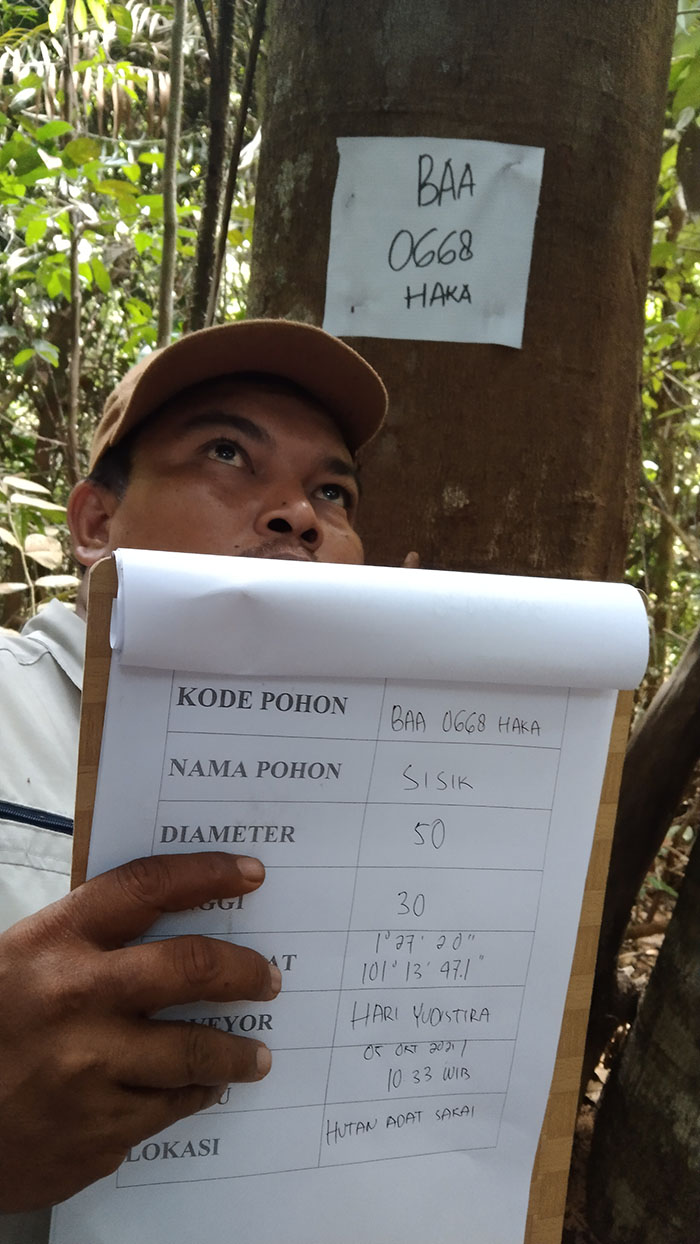 BAA
0668
HAKA
KODE POHON BAA 0668 HAKA
NAMA POHON SISIK
DIAMETER 50
30
1° 27' 20"
101° 13' 47.1"
HARI YUDISTIRA
05 OKT 2021/
10 33 WIB
LOKASI HUTAN ADAT SAKAI